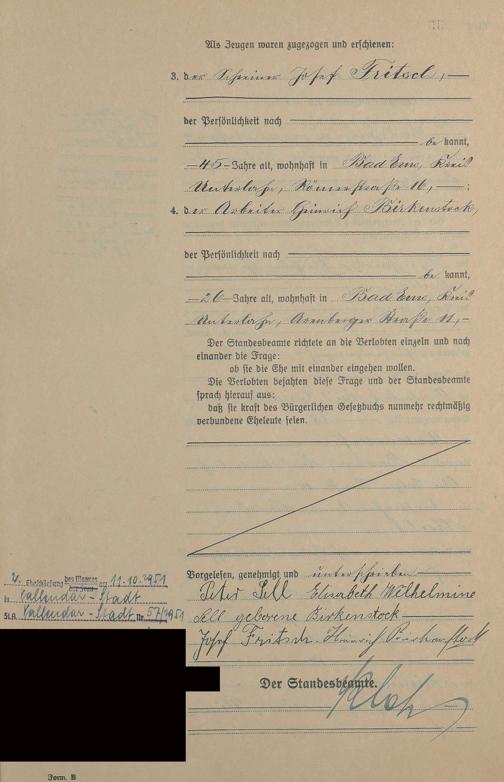 Als Zeugen waren zugezogen und erschienen:
3. der Schreiner Josef Fritsch,
der Persönlichkeit nach
be kannt,
45 Jahre alt, wohnhaft in Bad Ems, Kreis
Unterlahn, Römerstraße 16, ;
4. der Arbeiter Heinrich Birkenstock,
der Persönlichkeit nach
be kannt,
26 Jahre alt, wohnhaft in Bad Ems, Kreis
Unterlahn, Arenberger Straße 11,
Der Standesbeamte richtete an die Verlobten einzeln und nach
einander die Frage:
ob sie die Ehe mit einander eingehen wollen.
Die Verlobten bejahten diese Frage und der Standesbeamte
sprach hierauf aus:
daß sie kraft des Bürgerlichen Gesetzbuchs nunmehr rechtmäßig
verbundene Eheleute seien.
Vorgelesen, genehmigt und unterschrieben
Peter Sell Elisabeth Wilhelmine
Sell geborene Birkenstock
Josef Fritsch Heinrich Birkenstock
2. Eheschließung des Mannes am 11.10.1951
der Frau
in Vallendar-Stadt
St.A. Vallendar-Stadt Nr. 57/1951
Der Standesbeamte.
Form. B